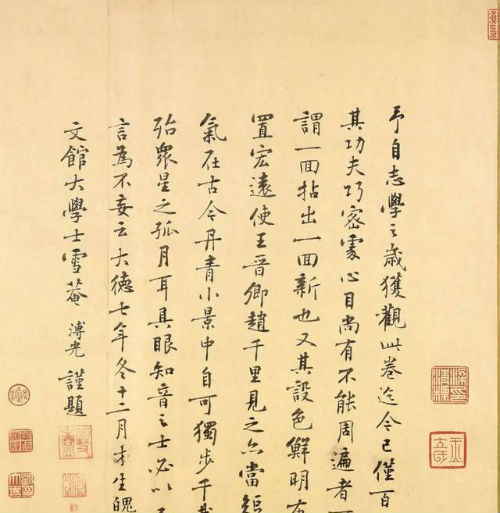 予自志學之歲獲觀此卷迄今已僅百
其功夫巧密處心目尚有不能周遍者
謂一囬拈出一囬新也又其設色鮮明
置宏遠使王晉卿趙千里見之亦當短
氣在古今丹青小景中自可獨步千
殆眾星之孤月耳具眼知音之士必以
言為不妄云大德七年冬十二月才生魄
文館大學士雪菴溥光謹題